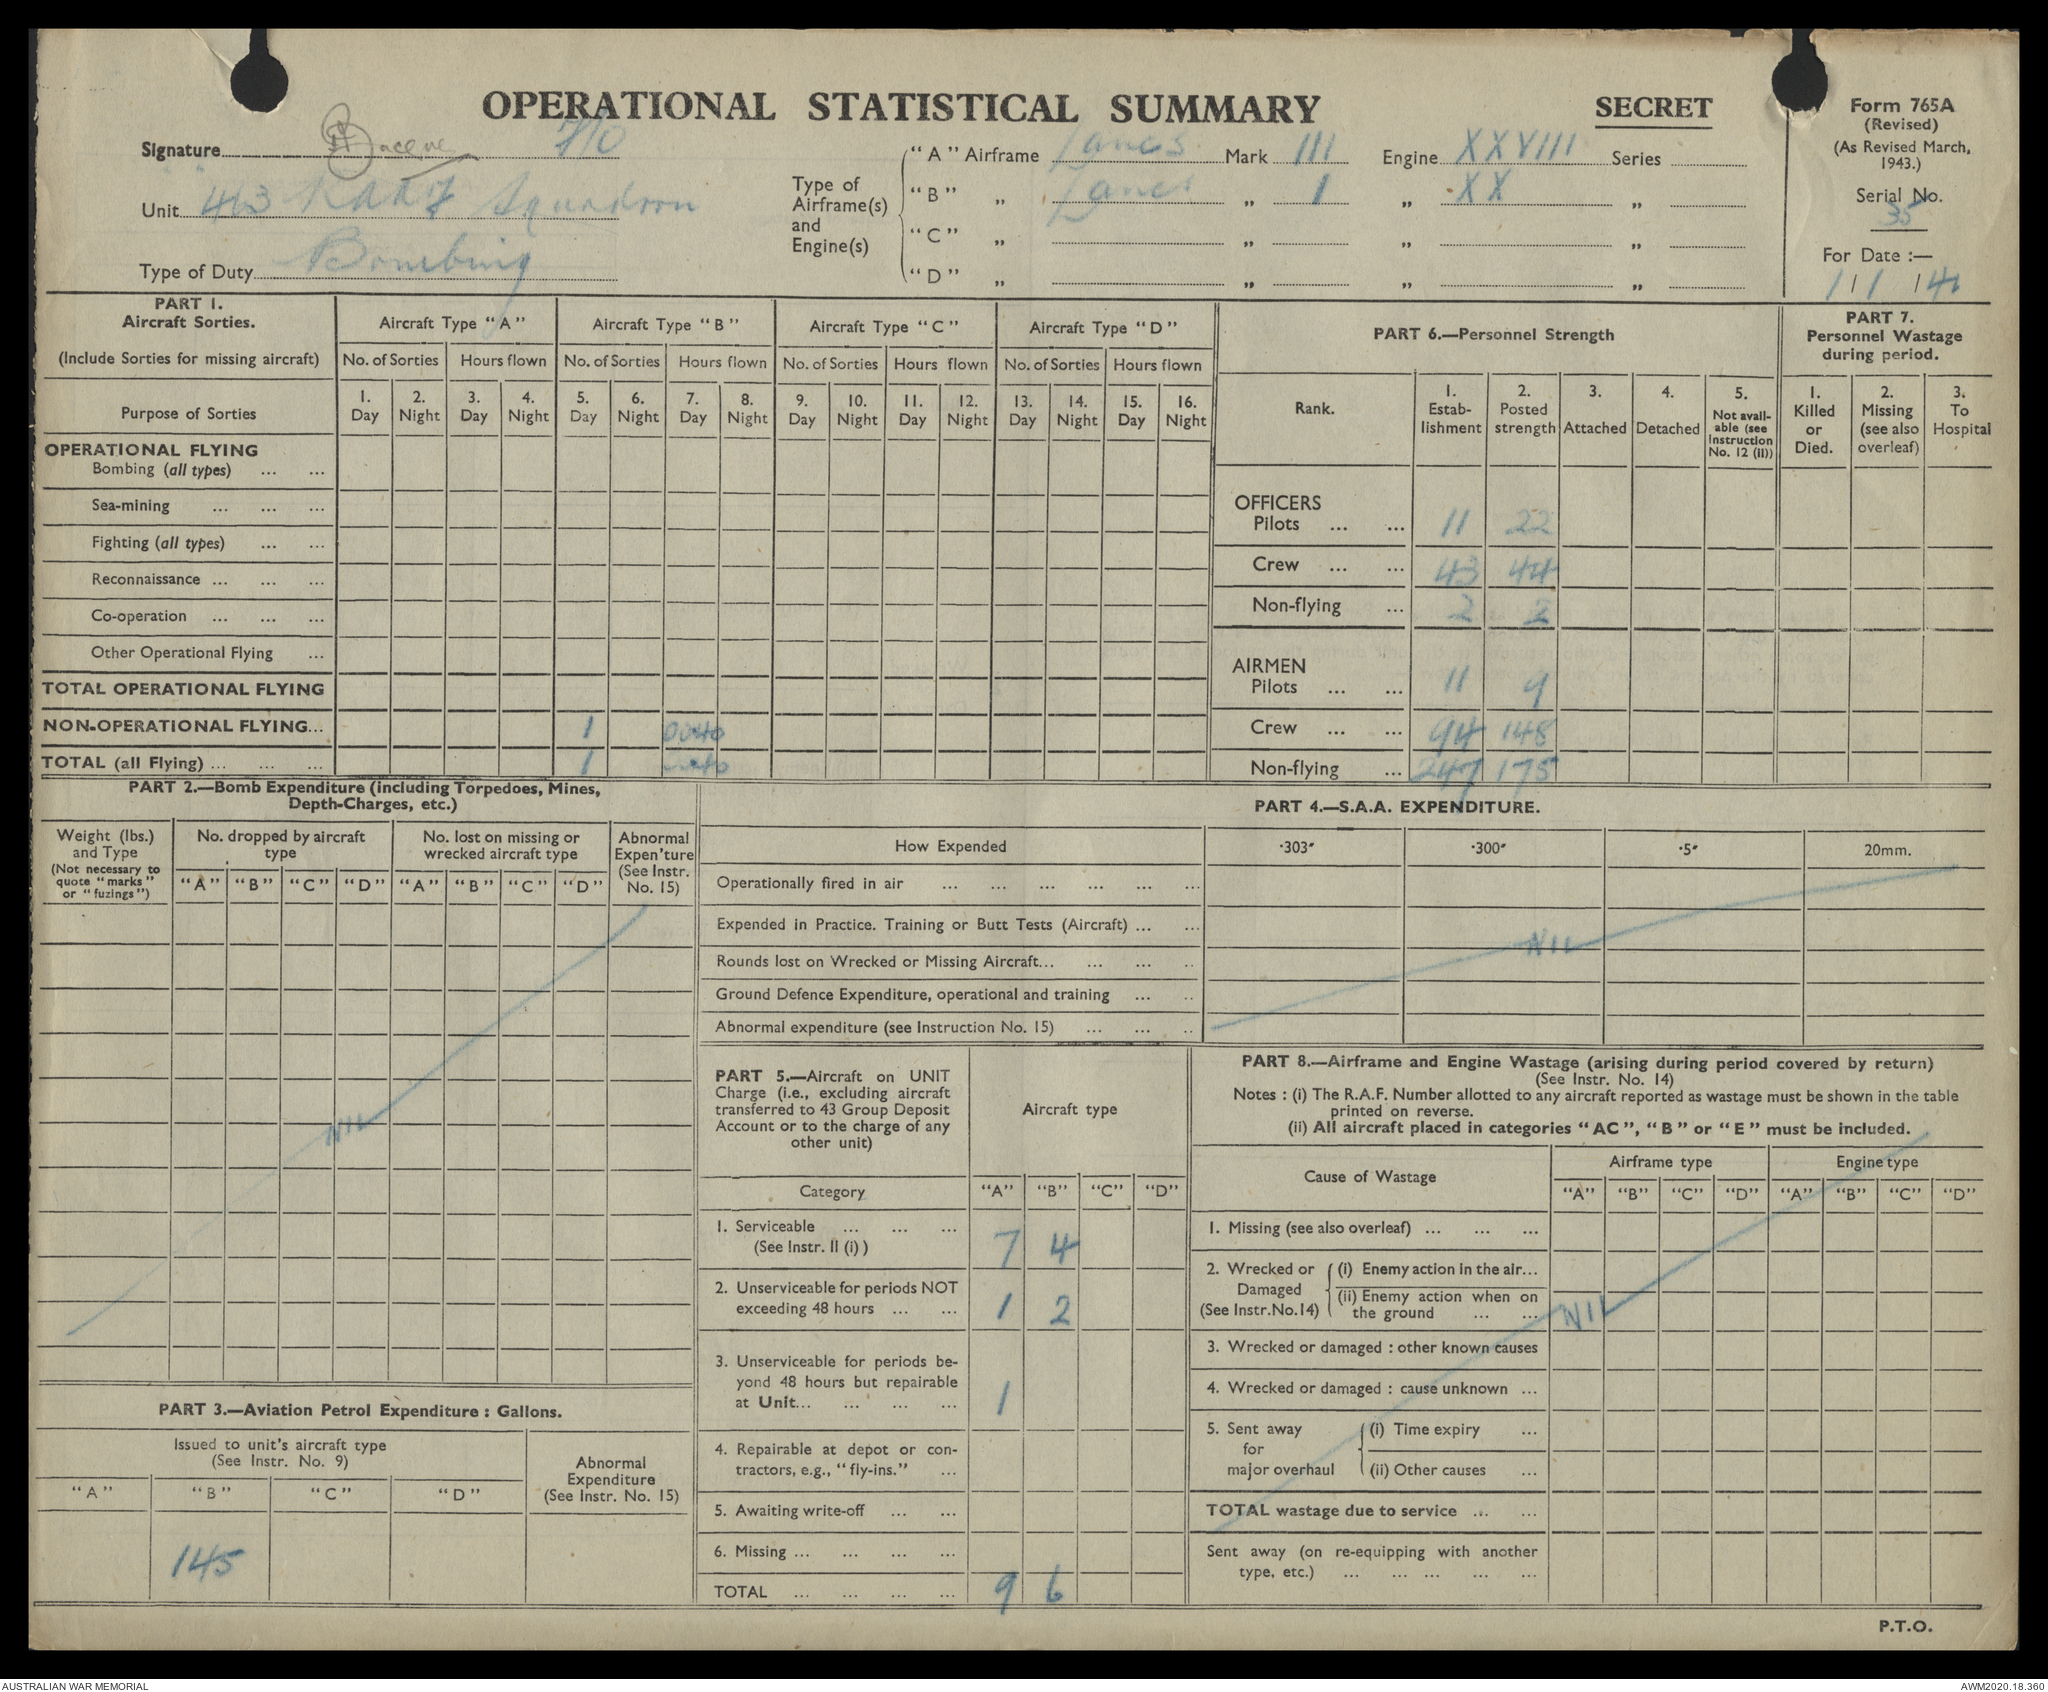 OPERATIONAL STATISTICAL SUMMARY
SECRET
Form 765A
(Revised)
(As Revised March,
1943.)
Serial No.
35
For Date :—
1/1/44
Signature F/O
Unit 463 RAAF Squadron
Type of Duty Bombing
Type of
Airframe(s)
and
Engine(s)
"A" Airframe Lancs Mark III Engine XXVIII Series
"B" „ Lancs „ 1 „ XX „
"C" „ „ „ „
"D" „ „ „ „
PART 1.
Aircraft Sorties.
(Include Sorties for missing aircraft)
Purpose of Sorties
Aircraft Type "A" Aircraft Type "B" Aircraft Type "C" Aircraft Type "D"
No. of Sorties Hours flown No. of Sorties Hours flown No. of Sorties Hours flown No. of Sorties Hours flown
1. 2. 3. 4. 5. 6. 7. 8. 9. 10. 11. 12. 13. 14. 15. 16.
Day Night Day Night Day Night Day Night Day Night Day Night Day Night Day Night
OPERATIONAL FLYING
Bombing (all types) ... ...
Sea-mining ... ... ...
Fighting (all types) ... ...
Reconnaissance ... ... ...
Co-operation ... ... ...
Other Operational Flying ...
TOTAL OPERATIONAL FLYING
NON-OPERATIONAL FLYING... 1 0040
TOTAL (all Flying) ... ... ... 1
PART 6.—Personnel Strength
Rank.
1. Estab-lishment
2. Posted strength
3. Attached
4. Detached
5. Not avail-able (see Instruction No. 12 (II))
OFFICERS
Pilots ... ... 11 22
Crew ... ... 43 44
Non-flying ... 2 2
AIRMEN
Pilots ... ... 11 9
Crew ... ... 94 148
Non-flying ... 247 175
PART 7.
Personnel Wastage
during period.
1. Killed or Died.
2. Missing (see also overleaf)
3. To Hospital
PART 2.—Bomb Expenditure (including Torpedoes, Mines,
Depth-Charges, etc.)
Weight (lbs.)
and Type
(Not necessary to
quote "marks"
or "fuzings")
No. dropped by aircraft
type
No. lost on missing or
wrecked aircraft type
Abnormal
Expen'ture
(See Instr.
No. 15)
"A" "B" "C" "D" "A" "B" "C" "D"
NIL
PART 4.—S.A.A. EXPENDITURE.
How Expended ·303" ·300" ·5" 20mm.
Operationally fired in air ... ... ... ... ... ...
Expended in Practice. Training or Butt Tests (Aircraft) ... ...
Rounds lost on Wrecked or Missing Aircraft... ... ... ..
Ground Defence Expenditure, operational and training ... ..
Abnormal expenditure (see Instruction No. 15) ... ... ..
NIL
PART 3.—Aviation Petrol Expenditure : Gallons.
Issued to unit's aircraft type
(See Instr. No. 9)
Abnormal
Expenditure
(See Instr. No. 15)
"A" "B" "C" "D"
145
PART 5.—Aircraft on UNIT
Charge (i.e., excluding aircraft
transferred to 43 Group Deposit
Account or to the charge of any
other unit)
Aircraft type
Category "A" "B" "C" "D"
1. Serviceable ... ... ...
(See Instr. II (i) ) 7 4
2. Unserviceable for periods NOT
exceeding 48 hours ... ... 1 2
3. Unserviceable for periods be-
yond 48 hours but repairable
at Unit... ... ... ... 1
4. Repairable at depot or con-
tractors, e.g., "fly-ins." ...
5. Awaiting write-off ... ...
6. Missing ... ... ... ...
TOTAL ... ... ... ... 9 6
PART 8.—Airframe and Engine Wastage (arising during period covered by return)
(See Instr. No. 14)
Notes : (i) The R.A.F. Number allotted to any aircraft reported as wastage must be shown in the table
printed on reverse.
(ii) All aircraft placed in categories "AC", "B" or "E" must be included.
Cause of Wastage Airframe type Engine type
"A" "B" "C" "D" "A" "B" "C" "D"
1. Missing (see also overleaf) ... ... ...
2. Wrecked or Damaged (See Instr.No.14)
(i) Enemy action in the air...
(ii) Enemy action when on
the ground ... ...
NIL
3. Wrecked or damaged : other known causes
4. Wrecked or damaged : cause unknown ...
5. Sent away for major overhaul
(i) Time expiry ...
(ii) Other causes ...
TOTAL wastage due to service ... ...
Sent away (on re-equipping with another
type, etc.) ... ... ... ... ...
P.T.O.
AUSTRALIAN WAR MEMORIAL
AWM2020.18.360